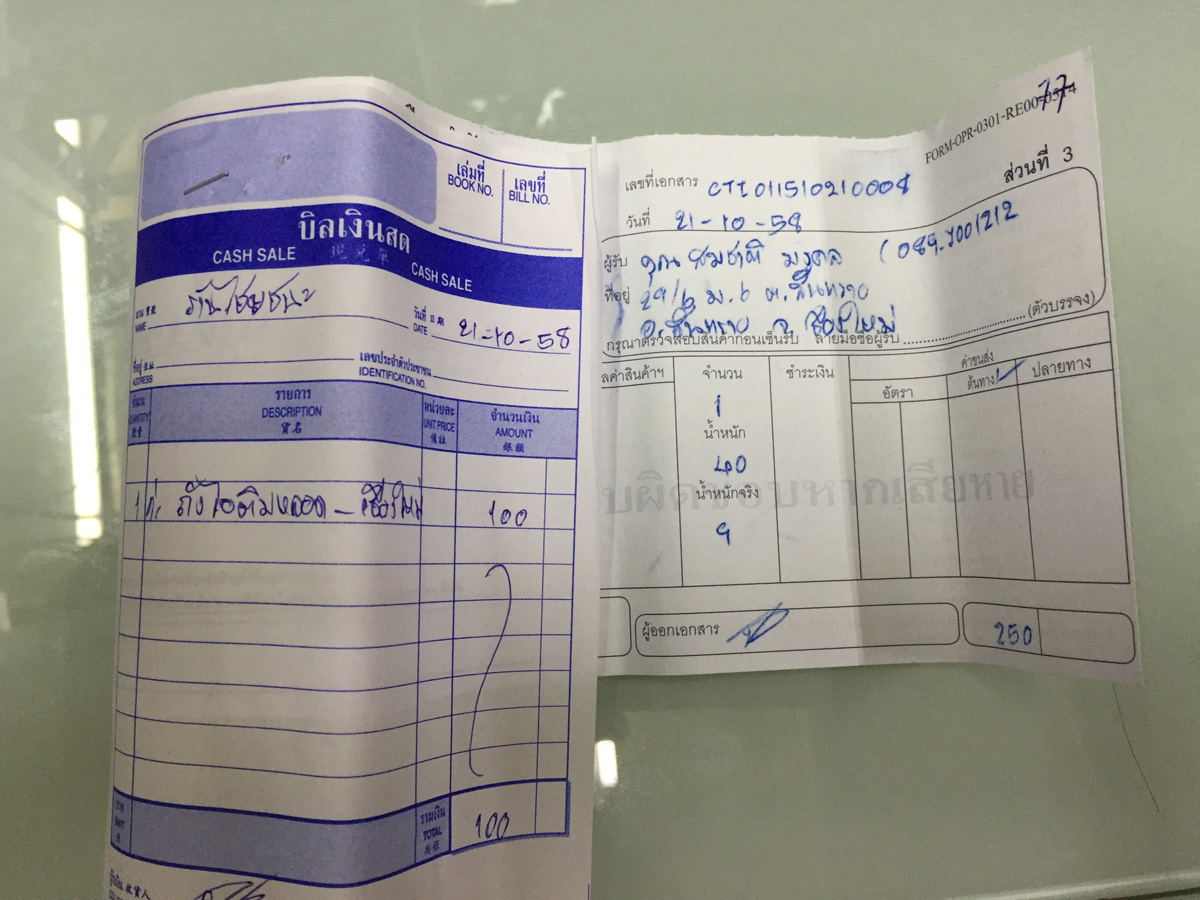 เล่มที่
BOOK NO.
เลขที่
BILL NO.
บิลเงินสด
CASH SALE
CASH SALE
NAME ร้านไชยชนะ
วันที่
DATE 21-10-58
ที่อยู่
ADDRESS
เลขประจำตัวประชาชน
IDENTIFICATION NO.
รายการ
DESCRIPTION
貨名
หน่วยละ
UNIT PRICE
จำนวนเงิน
AMOUNT
銀額
1 ค่า ถังไอติมหลอด - เชียงใหม่ 100
บาท
BAHT
รวมเงิน
TOTAL
共銀
100
FORM-OPR-0301-RE00
77
ส่วนที่ 3
เลขที่เอกสาร CTI011510210008
วันที่ 21-10-58
ผู้รับ คุณ สมชาติ มงคล (089.7001212
ที่อยู่ 29/6 ม.6 ต.สันทราย
อ.สันทราย จ.เชียงใหม่
(ตัวบรรจง)
กรุณาตรวจสอบสินค้าก่อนเซ็นรับ ลายมือชื่อผู้รับ
ลค่าสินค้าฯ
จำนวน
ชำระเงิน
ค่าขนส่ง
อัตรา
ต้นทาง
ปลายทาง
1
น้ำหนัก
40
น้ำหนักจริง
9
บผิดชอบหากเสียหาย
ผู้ออกเอกสาร
250